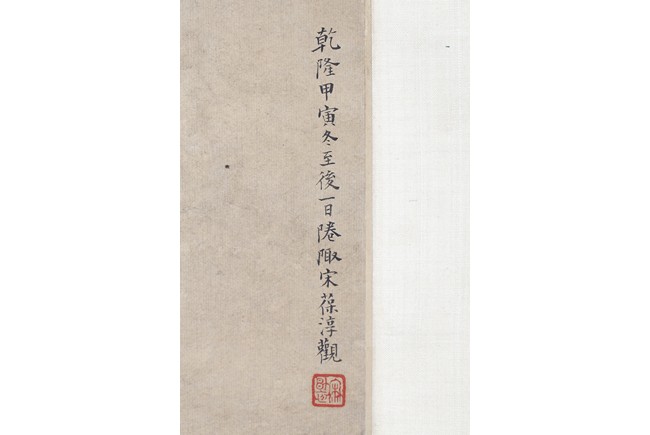 乾隆甲寅冬至後一日陬宋葆淳觀